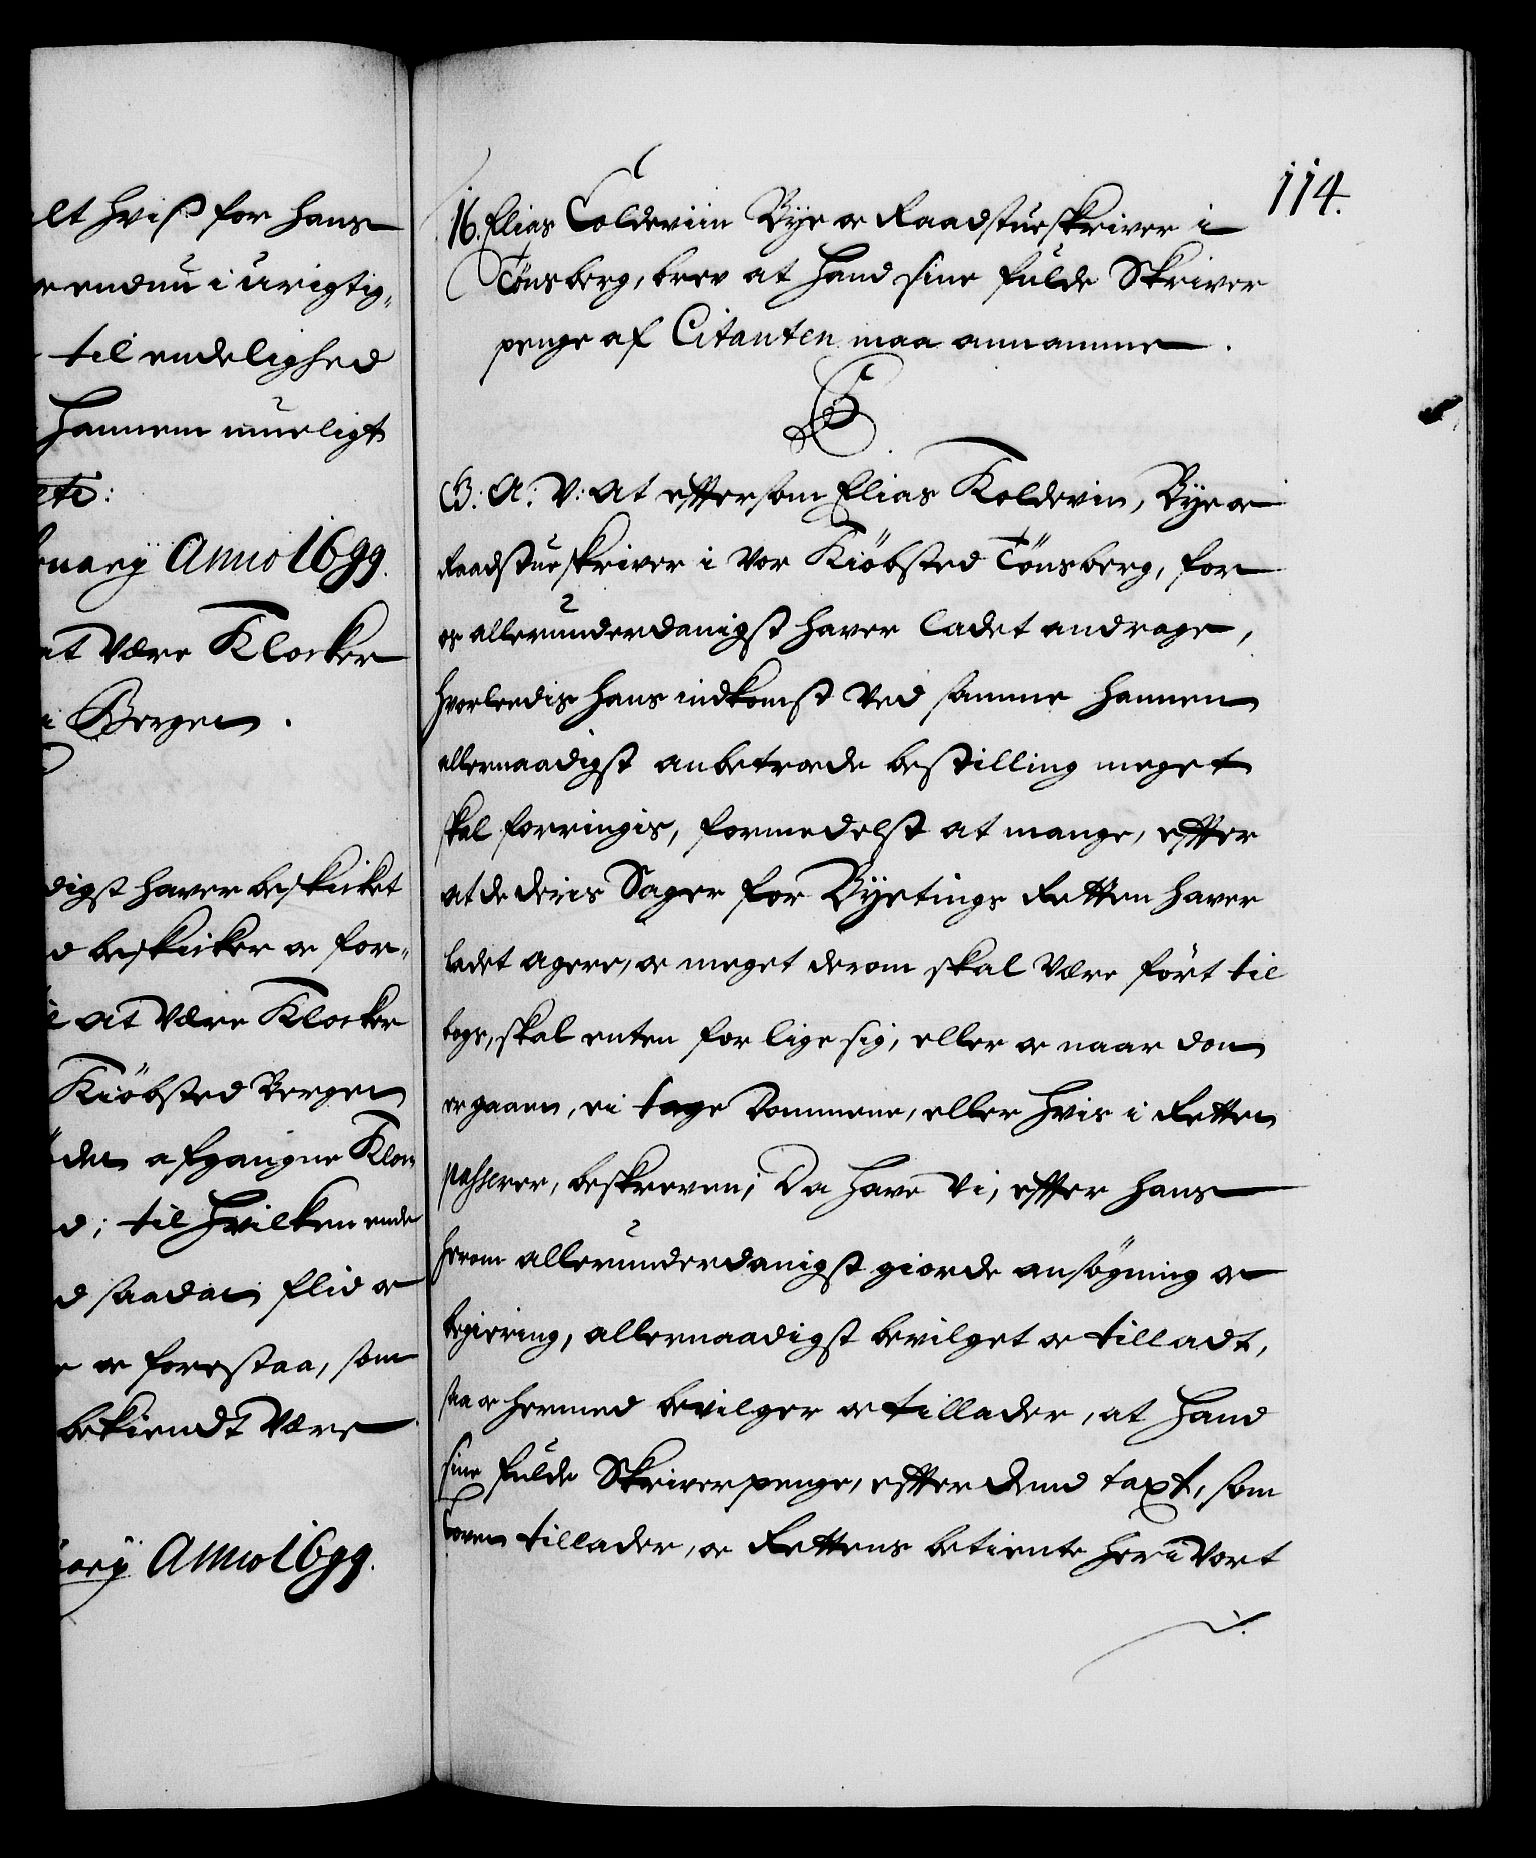 alt hviß for hans
endnu i urigtig=
til endelighed
hannem mueligt
etc:
bruarij Anno 1699.
at være Klocker
i Bergen.
digst haver beskicket
beskicker oc for=
at være Klocker
Kiöbsted Bergen
den afgangne Kloc=
d; til hvilken ende
d saadan flid oc
oc forestaa, som
bekiendt være
uarij Anno 1699.
114.
16. Elias Coldeviin Bye oc Raadstueskriver i
Tönsberg, brev at hand sine fulde Skriver
penge af Citanten maa annamme.
G: A: V: at eftersom Elias Koldevin, Bye oc
Raadstueskriver i vor Kiöbsted Tönsberg, for
os allerunderdanigst haver ladet andrage,
hvorleedis hans indkomst ved samme hannem
allernaadigst anbetroede bestilling meget
skal forringis, formedelst at mange, efter
at de deris Sager for Byetings Retten haver
ladet agere, oc meget derom skal være fört til
bogs, skal enten forlige sig, eller oc naar dom
er gaaen, ei tage Dommene, eller hvis i Retten
passerer, beskreven; Da have Vi, efter hans
herom allerunderdanigst giorde ansögning oc
begiering, allernaadigst bevilget oc tilladt,
saa oc hermed bevilger oc tillader, at hand
sine fulde Skriverpenge, efter dend taxt, som
Loven tillader, oc Rettens betiente her i Vort